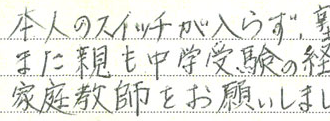 本人のスイッチが入らず、塾
また親も中学受験の経
家庭教師をお願いしまし